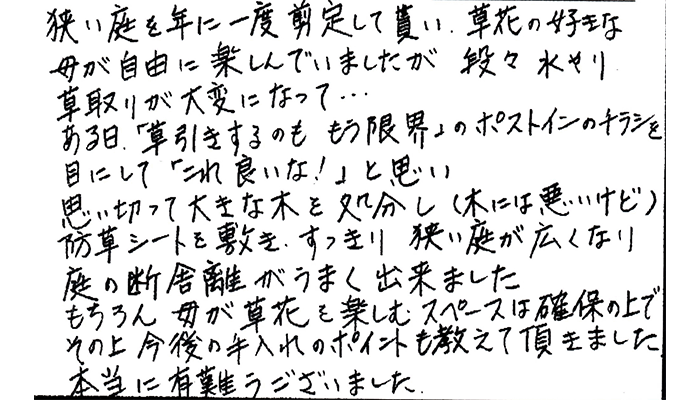 狭い庭を年に一度剪定して貰い、草花の好きな
母が自由に楽しんでいましたが 段々水やり
草取りが大変になって…
ある日、「草引きするのも もう限界」のポストインのチラシを
目にして「これ良いな!」と思い
思い切って大きな木を処分し(木には悪いけど)
防草シートを敷き、すっきり 狭い庭が広くなり
庭の断舎離がうまく出来ました
もちろん 母が草花を楽しむスペースは確保の上で
その上 今後の手入れのポイントも教えて頂きました。
本当に有難うございました。